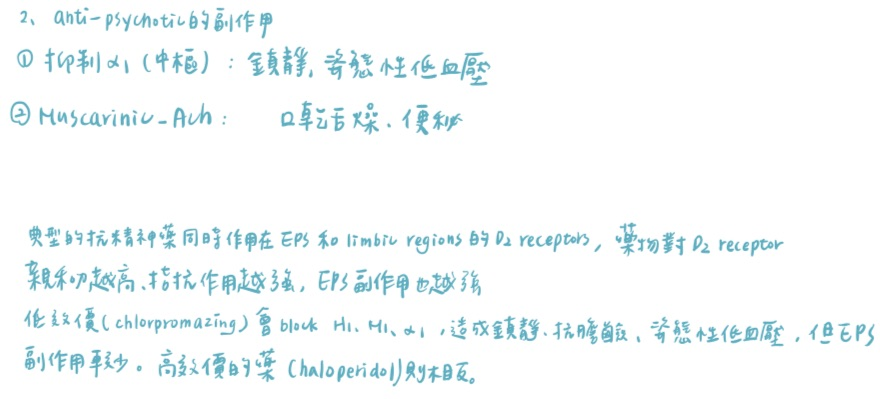 2、anti-psychotic的副作用
① 抑制α1(中樞)：鎮靜,姿態性低血壓
② Muscarinic-Ach： 口乾舌燥、便秘
典型的抗精神藥同時作用在 EPS 和 limbic regions 的 D2 receptors，藥物對 D2 receptor
親和力越高、拮抗作用越強，EPS副作用也越強
低效價(chlorpromazing)會block H1、M1、α1，造成鎮靜、抗膽鹼、姿態性低血壓，但EPS
副作用較少。高效價的藥(haloperidol)則相反。